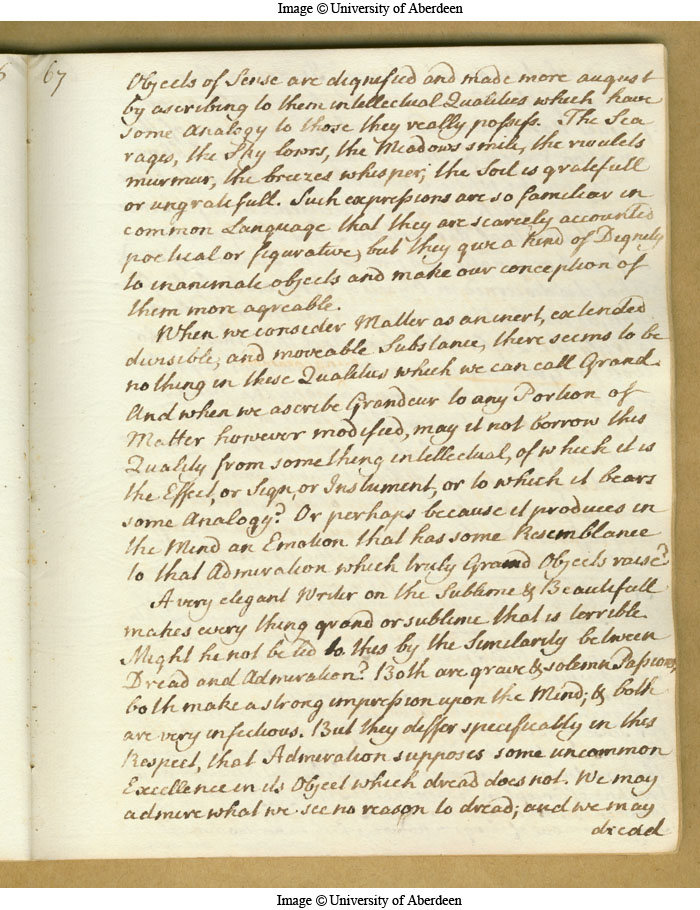 Image © University of Aberdeen
67
Objects of Sense are dignified and made more august
by ascribing to them intellectual Qualities which have
some Analogy to those they really possess. The Sea
rages, the Sky lowrs, the Meadows smile, the rivulets
murmur, the breezes whisper; the Soil is gratefull
or ungratefull. Such expressions are so familiar in
common Language that they are scarcely accounted
poetical or figurative, but they give a kind of Dignity
to inanimate objects and make our conception of
them more agreable.
When we consider Matter as an inert, extended
divisible, and moveable Substance, there seems to be
nothing in these Qualities which we can call Grand.
And when we ascribe Grandeur to any Portion of
Matter however modified, may it not borrow this
Quality from something intellectual, of which it is
the Effect, or Sign, or Instument, or to which it bears
some Analogy? Or perhaps because it produces in
the Mind an Emotion that has some Resemblance
to that Admiration which truly Grand Objects raise?
A very elegant Writer on the Sublime & Beautifull
makes every thing grand or sublime that is terrible
Might he not be led to this by the Similarity between
Dread and Admiration? Both are grave & solemn Passions,
both make a strong impression upon the Mind; & both
are very infectious. But they differ specifically in this
Respect, that Admiration supposes some uncommon
Excellence in its Object which dread does not. We may
admire what we see no reason to dread; and we may
dread
Image © University of Aberdeen